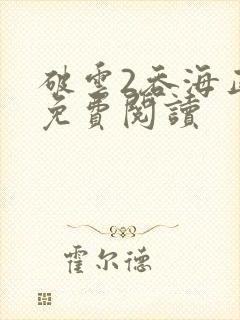 破雲2吞海正
免費閱讀
霍尔德